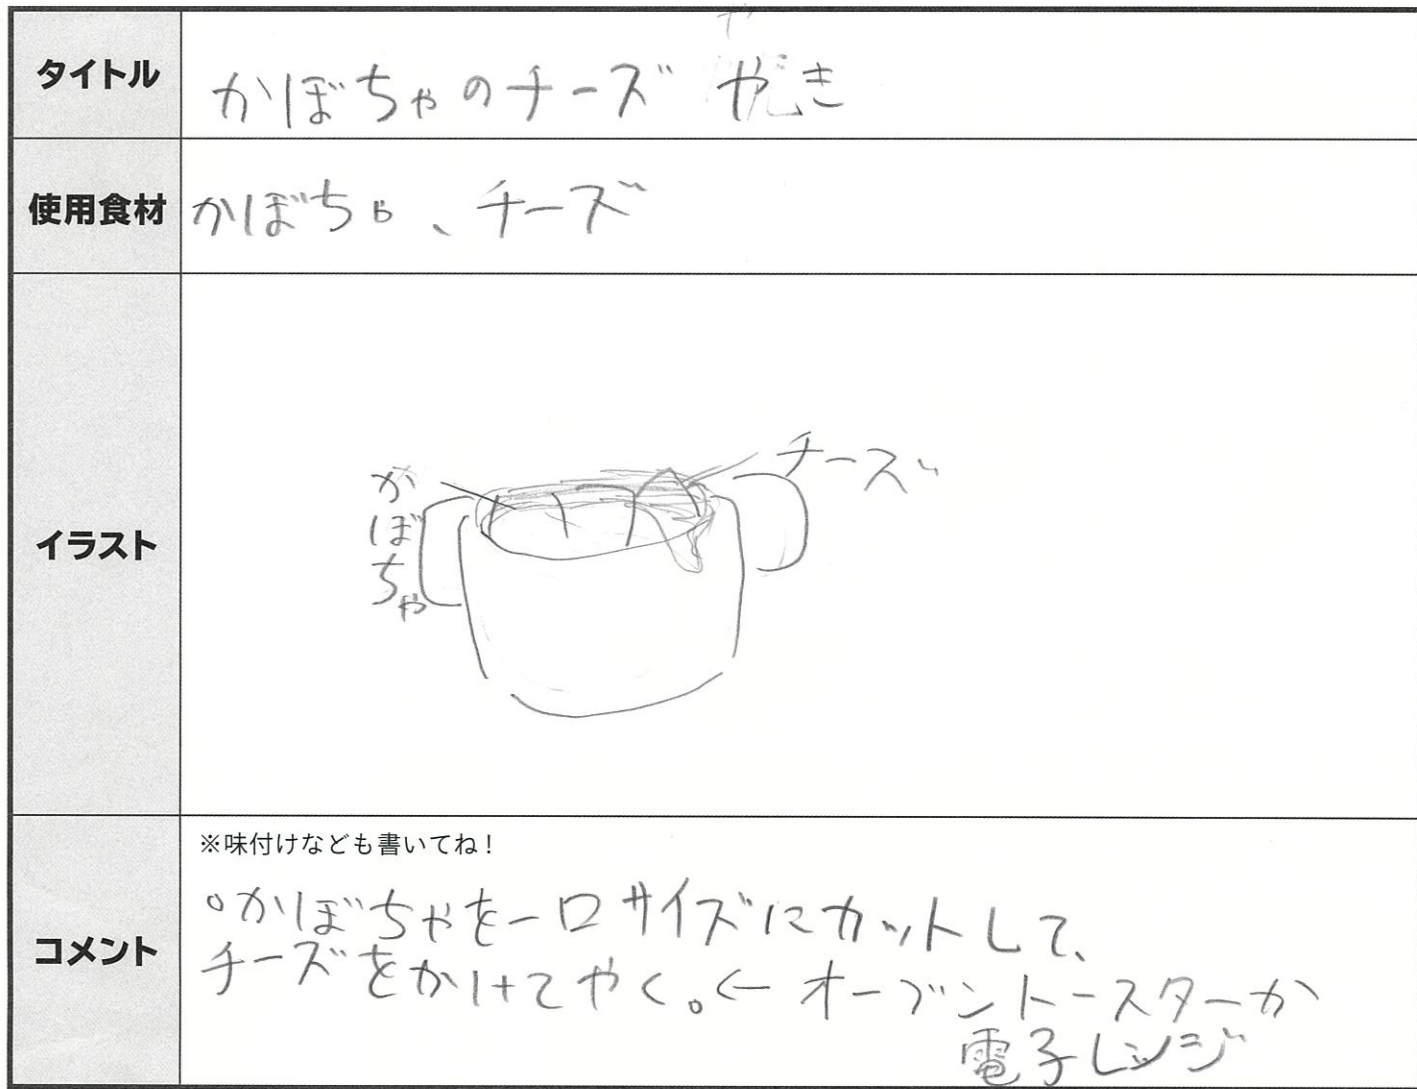 タイトル
かぼちゃのチーズ やき
使用食材
かぼちゃ、チーズ
イラスト
かぼちゃ
チーズ
コメント
※味付けなども書いてね！
○かぼちゃを一口サイズにカットして、
チーズをかけてやく。← オーブントースターか
電子レンジ